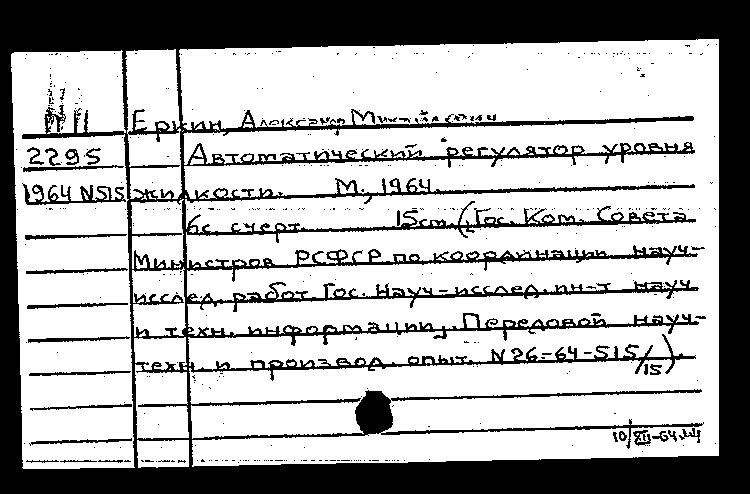 П 11 Еркин, Александр Михайлович
2295 Автоматический регулятор уровня
1964 N515 жидкости. М., 1964.
6с. с черт. 15см. (Гос. Ком. Совета
Министров РСФСР по координации науч-
исслед. работ. Гос. Науч-исслед. ин-т науч
и техн. информации,. Передовой науч-
техн. и производ. опыт. N 26-64-515/15).
10/XII-64